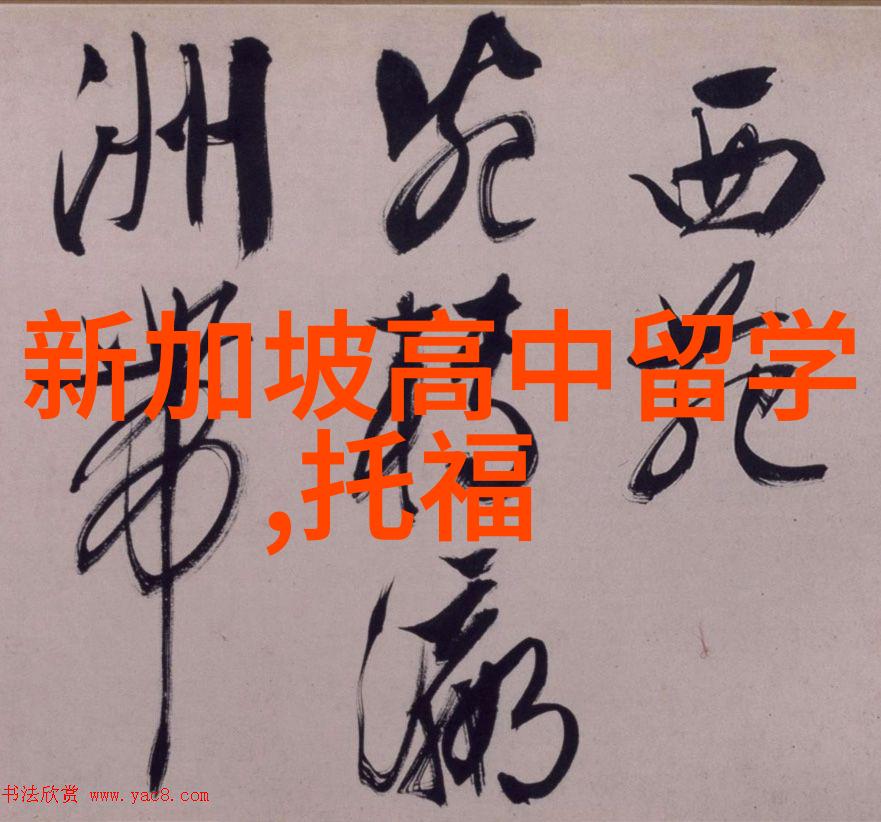 西苑
瀛
洲带
新加坡高中留学
,托福
书法欣赏 www.yac8.com